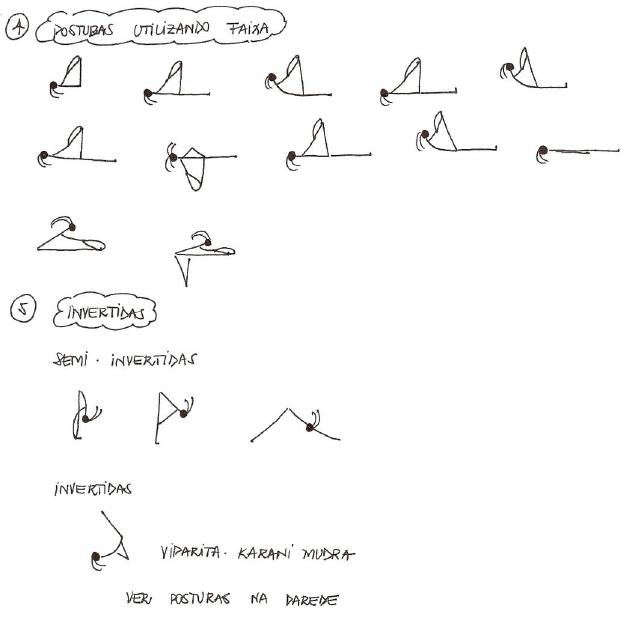 4 POSTURAS UTILIZANDO FAIXA
5 INVERTIDAS
SEMI-INVERTIDAS
INVERTIDAS
VIPARITA-KARANI MUDRA
VER POSTURAS NA PAREDE